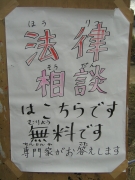 ほう りつ
法律
そうだん
相談
はこちらです
むりょう
無料です
専門家がお答えします